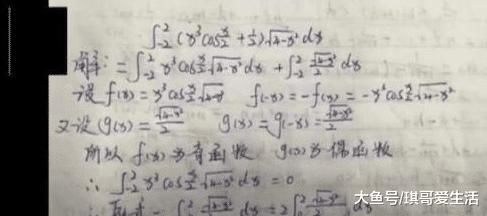 ∫₋₂² (x³cos x/2 + 1/2)√(4-x²) dx
解：= ∫₋₂² x³cos x/2 √(4-x²) dx + ∫₋₂² √(4-x²)/2 dx
设 f(x) = x³cos x/2 √(4-x²) f(-x) = -f(x) = -x³cos x/2 √(4-x²)
又设 g(x) = √(4-x²)/2 g(x) = g(-x) = √(4-x²)/2
所以 f(x)为奇函数 g(x)为偶函数
∴ ∫₋₂² x³cos x/2 √(4-x²) dx = 0
√(4-x²)/2 dx = 2∫₀² √(4-x²)/2 dx
大鱼号/琪哥爱生活